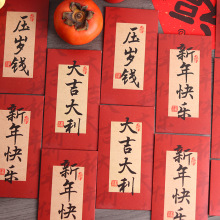 压岁钱
压岁钱
新年快乐
大吉大利
大吉大利
新年快乐
新年快乐
新年快乐